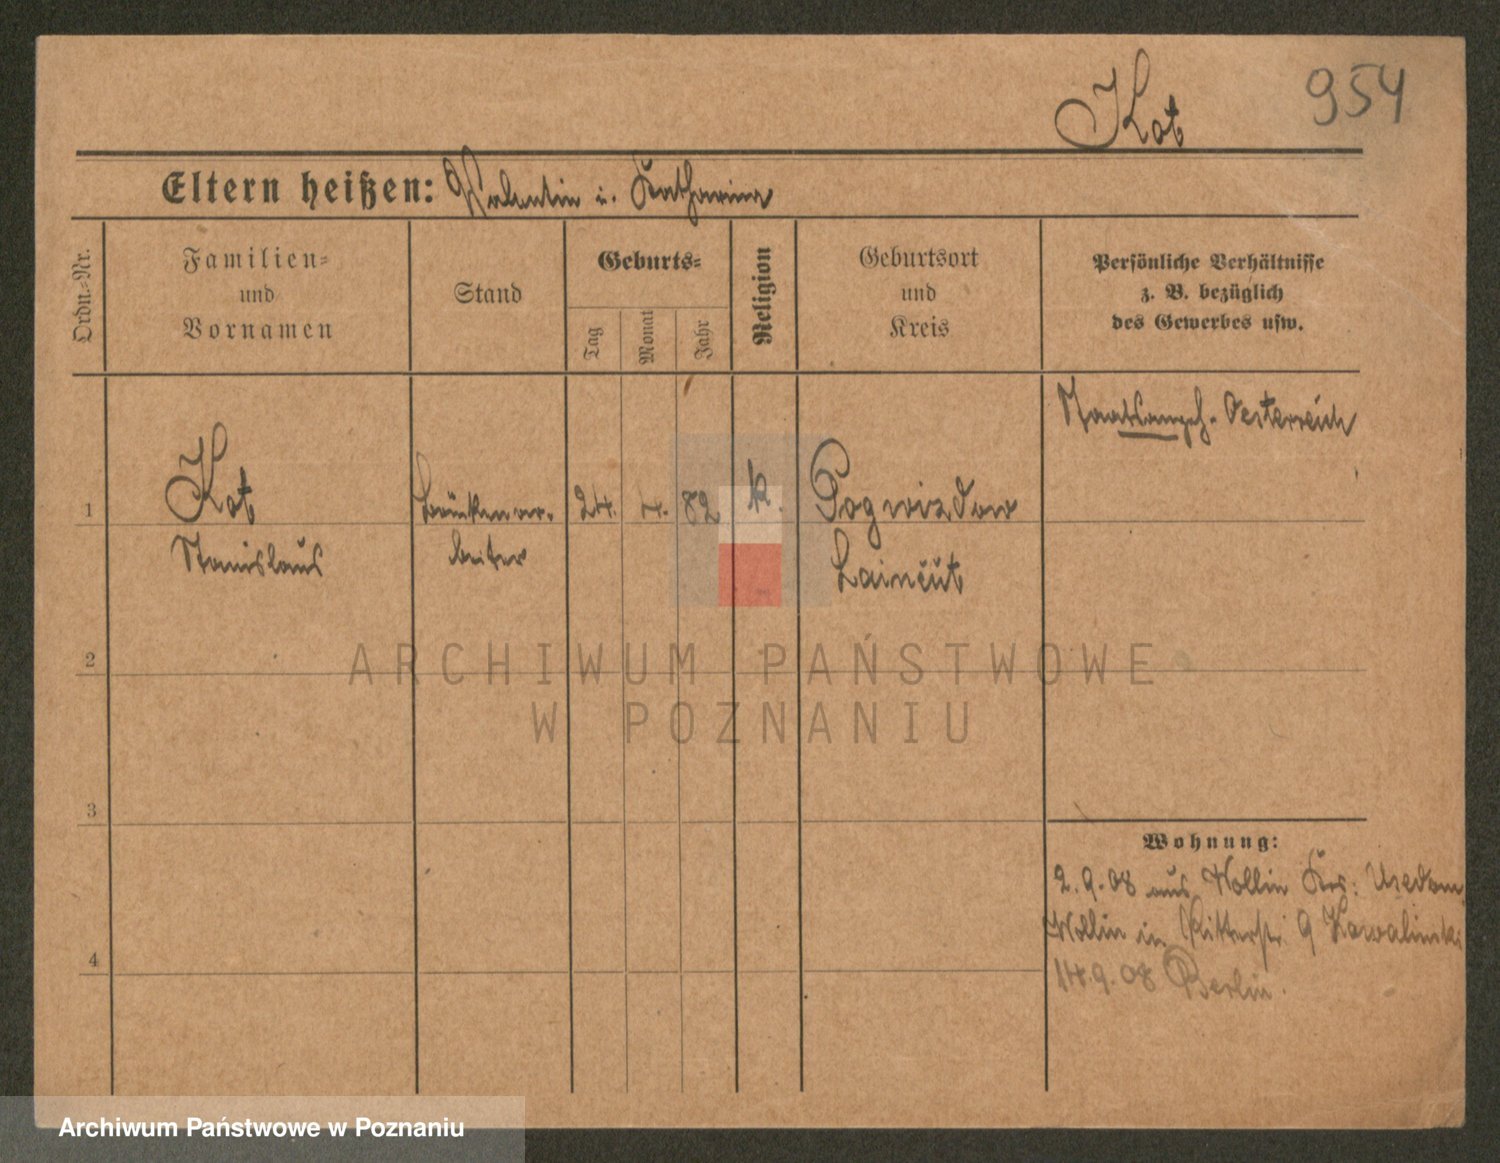 Kot 954
Eltern heißen: Valentin u. Katharina
Ordn.-Nr.
Familien-
und
Vornamen
Stand
Geburts-
Tag
Monat
Jahr
Religion
Geburtsort
und
Kreis
Persönliche Verhältnisse
z. B. bezüglich
des Gewerbes usw.
Staatsangeh. Oesterreich
1 Kot Brückenar- 24. 4. 82 k. Pogwizdow
Stanislaus beiter Laincut
ARCHIWUM PAŃSTWOWE
W POZNANIU
2
3
Wohnung:
2.9.08 aus Wollin Krs: Usedom
Wollin in Ritterstr. 9 Kowalinski
4
14.9.08 Berlin.
Archiwum Państwowe w Poznaniu